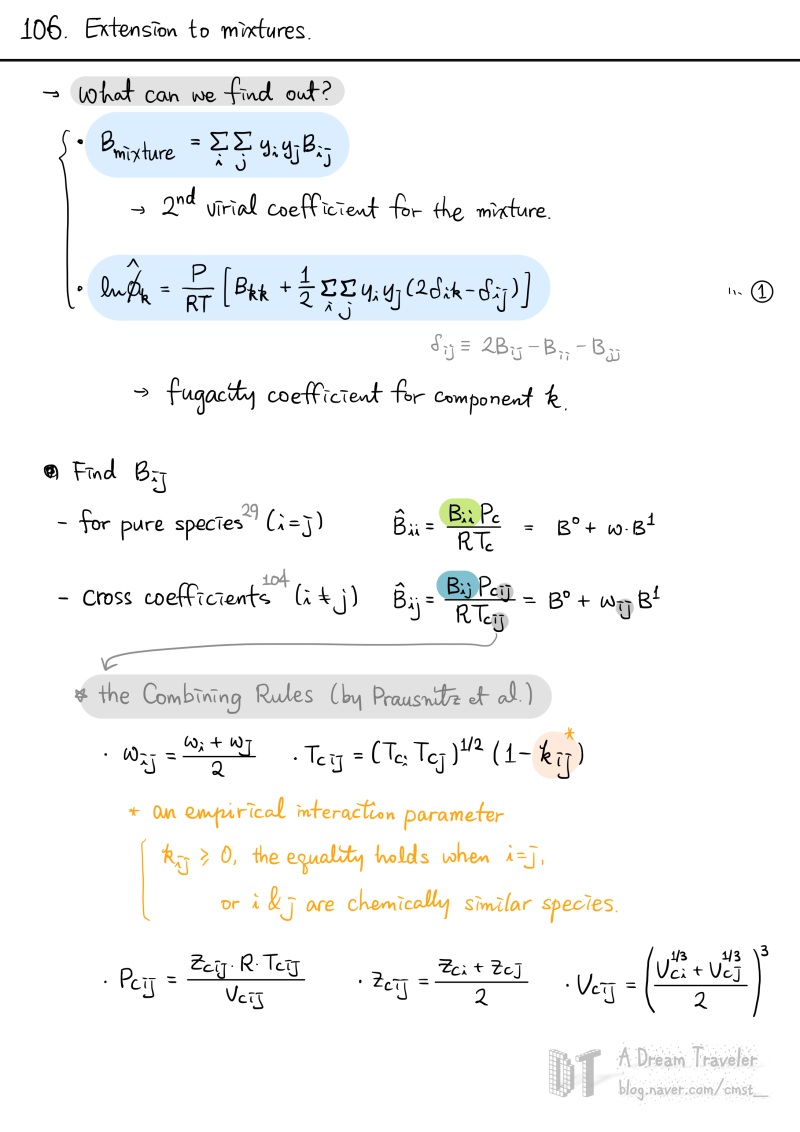 106. Extension to mixtures.
→ What can we find out?
• B_mixture = Σ_i Σ_j y_i y_j B_ij
→ 2nd virial coefficient for the mixture.
• ln φ̂_k = P/RT [B_kk + 1/2 Σ_i Σ_j y_i y_j (2δ_ik - δ_ij)] ... ①
δ_ij ≡ 2B_ij - B_ii - B_jj
→ fugacity coefficient for component k.
Find B_ij
- for pure species^29 (i=j) B̂_ii = B_ii P_c / RT_c = B^0 + ω·B^1
- cross coefficients^104 (i≠j) B̂_ij = B_ij P_cij / RT_cij = B^0 + ω_ij B^1
☆ the Combining Rules (by Prausnitz et al.)
· ω_ij = (ω_i + ω_j)/2 · T_cij = (T_ci T_cj)^1/2 (1 - k_ij*)
* an empirical interaction parameter
k_ij ≥ 0, the equality holds when i=j,
or i & j are chemically similar species.
· P_cij = Z_cij · R · T_cij / V_cij · Z_cij = (Z_ci + Z_cj)/2 · V_cij = ((V_ci^1/3 + V_cj^1/3)/2)^3
DT A Dream Traveler
blog.naver.com/cmst__